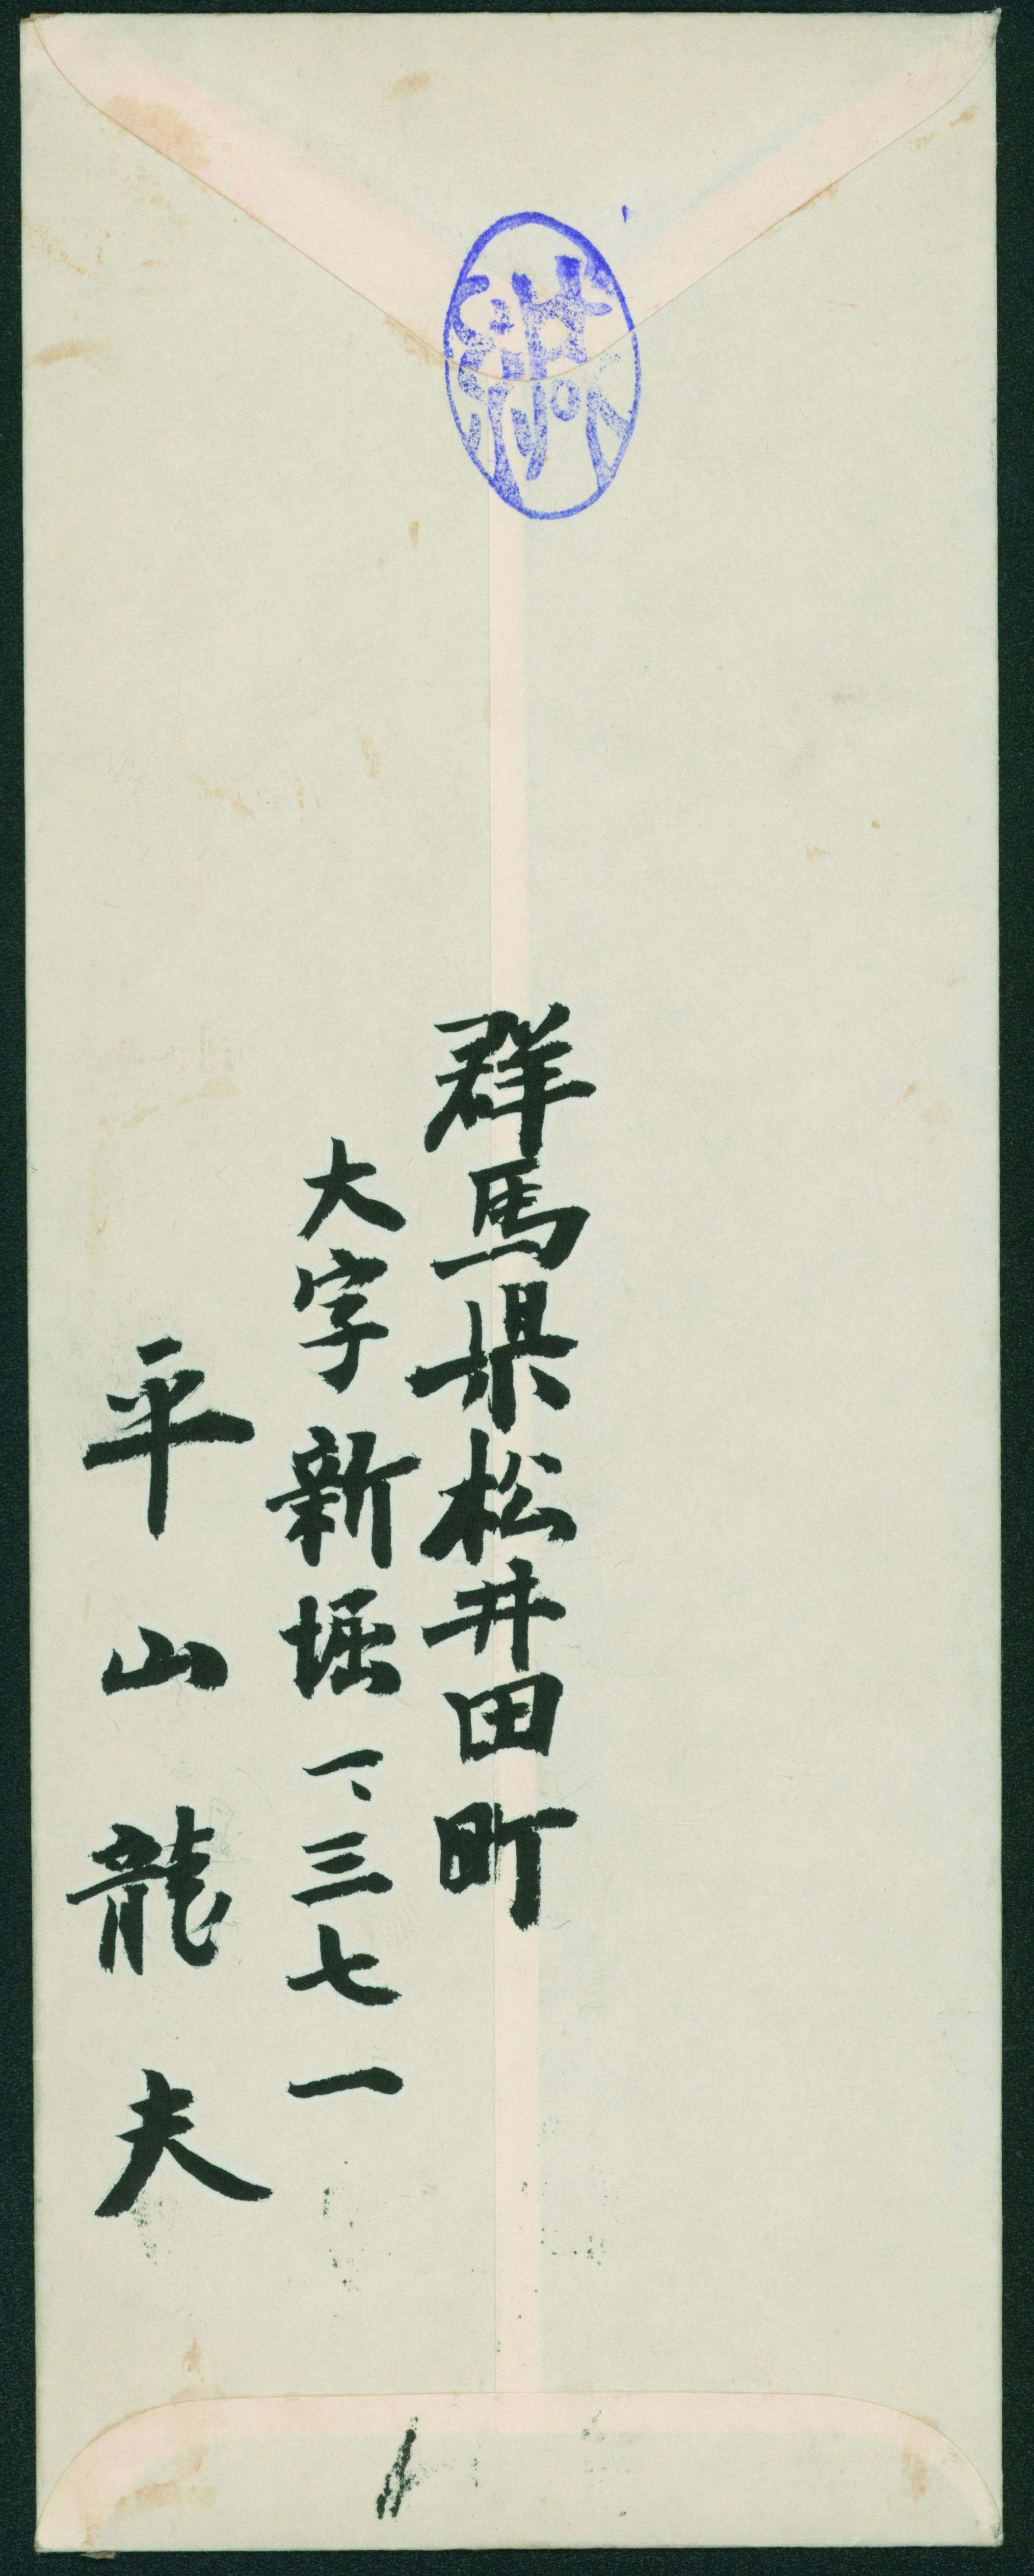 群馬県松井田町
大字新堀一、三七一
平山龍夫